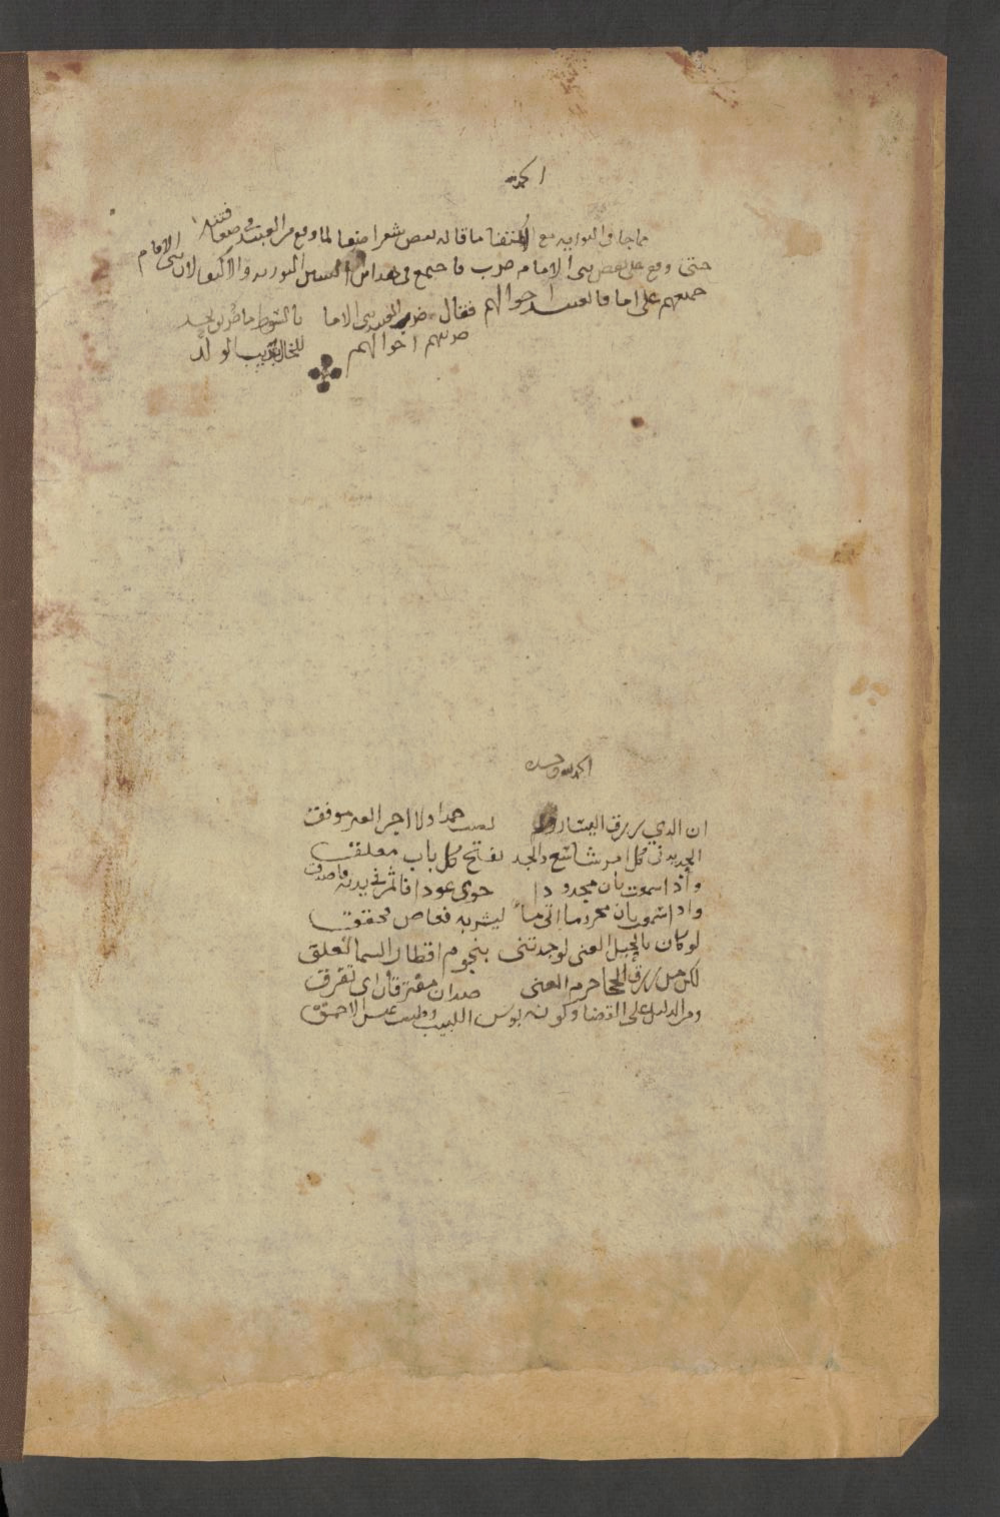 الحمد لله
مما جا في التوريه مع الاكتفا ما قاله بعض شعرا صنعا لما وقع من العبيد في صنعا فتنه
حتى وقع على بعض بني الامام ضرب فاجتمع في هذا من التورية والاكتفا لان بني الامام
جميعهم على اما فالعبيد اخوالهم فقال ضرب العبيد بني الاما
ضربهم اخوالهم للخال الولد
الحمد لله وحده
ان الذي رزق اليسار ولم حمدا ولا اجرا لغير موفق
الجد يدني كل امر شاسع والجد يفتح كل باب مغلق
واذا سمعت بان مجدودا حوى عودا فاثمر في يديه فاصدق
واذا سمعت بان محروما اتى ماء ليشربه فغاض فحقق
لو كان بالحيل الغنى لوجدتني بنجوم اقطار السما تعلقي
لكن من رزق الحجا حرم الغنى ضدان مفترقان اي تفرق
ومن الدليل على القضا وكونه بوس اللبيب وطيب عيش الاحمق